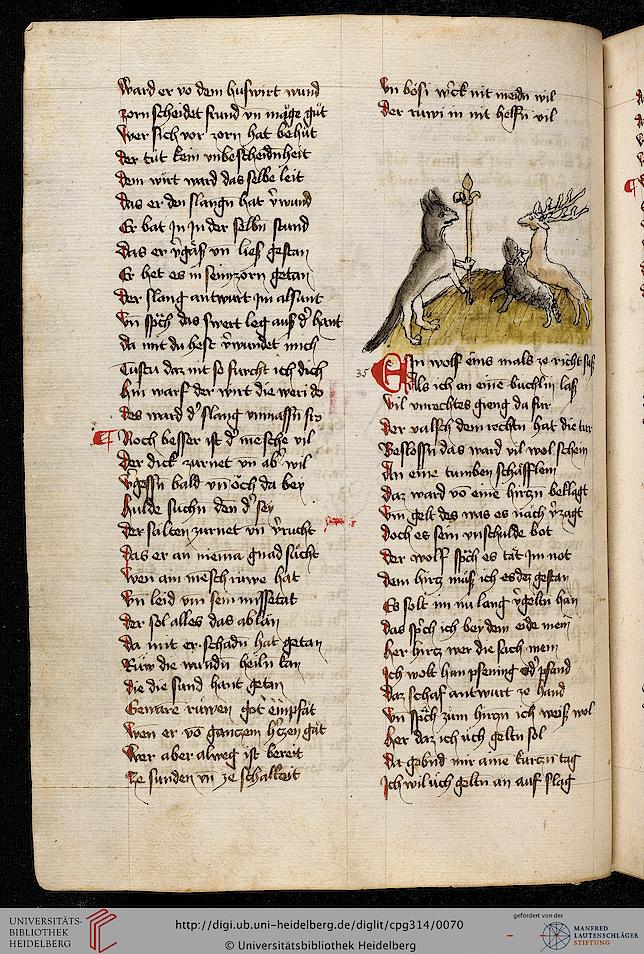 Ward er vo dem huswirt wund
zorn scheidet frund vn mage gut
Wer sich vor zorn hat behut
Der tut kein vnbescheidnheit
Dem wirt ward das selbe leit
Das er den slangn hat vwund
Er bat in in der selbn stund
Das er vgäss vn liess gestan
Er het es in seim zorn getan
Der slang antwurt im alsunt
Vn spch das swert leg auss d hant
da mit du hest vwundet mich
Tustu daz nit so furcht ich dich
hin warf der wirt die weri do
Des ward d slang vnmassn fro
Noch besser ist d mesche vil
Der dick zurnet vn ab wil
vgessn bald vn och da bey
hulde suchn den d sey
der salten zurnet vn vrucht
Das er an niema gnad sucht
Wen am mesch ruwe hat
Vn leid vm sein missetat
der sol alles das ablan
Da mit er schadn hat getan
Ruw die wundn heiln kan
die die sund hant getan
Geware ruwen got empfat
Wen er vo ganczem hczen gat
Wer aber alweg ist bereit
Ze sunden vn ze schalkeit
Vn bösi wck nit meidn wil
Der ruwi in nit helffn vil
35
Ein wolf eins mals ze richt sass
Als ich an eine buchlin lass
Vil vnrechtes gieng da fur
Der valsch dem rechtn hat die tur
Beslossn das ward vil wol schein
An eine tumben schäfflein
Daz ward vo eine hirczn beklagt
Vm gelt des was es nach vzagt
Doch es sein vnschulde bot
Der wolff spch es tät im not
Dem hircz muss ich es dez gestan
Es solt im nu lang vgeltn han
Das spch ich bey dem eide mein
her hircz wer die sach mein
Ich wolt hun pfening od pfand
Daz schaf antwurt ze hand
Vn spch zum hirczn ich weiss wol
her daz ich uch geltn sol
Da gebnd mir aine kurczn tag
Ich wil uch geltn an auf slag
UNIVERSITÄTS-
BIBLIOTHEK
HEIDELBERG
http://digi.ub.uni-heidelberg.de/diglit/cpg314/0070
© Universitätsbibliothek Heidelberg
gefördert von der
MANFRED
LAUTENSCHLÄGER
STIFTUNG